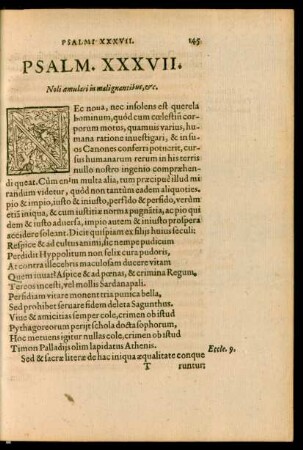 PSALMI XXXVII. 145
PSALM. XXXVII.
Noli æmulari in malignantibus, &c.
NEc noua, nec insolens est querela
hominum, quòd cum cœlestiũ cor
porum motus, quamuis varius, hu
mana ratione inuestigari, & in su
os Canones conferri potuerit, cur
sus humanarum rerum in his terris
nullo nostro ingenio compræhen
di queat. Cùm enim multa alia, tum præcipuè illud mi
randum videtur, quòd non tantùm eadem aliquoties
pio & impio, iusto & iniusto, perfido & perfido, verùm
etiã iniqua, & cum iustitiæ norma pugnãtia, ac pio qui
dem & iusto aduersa, impio autem & iniusto prospera
accidere soleant. Dicit quispiam ex filijs huius seculi:
Respice & ad cultus animi, sic nempe pudicum
Perdidit Hyppolitum non felix cura pudoris,
At contra illecebris maculosam ducere vitam
Quem iuuat? Aspice & ad pœnas, & crimina Regum,
Tereos incesti, vel mollis Sardanapali.
Perfidiam vitare monent tria punica bella,
Sed prohibet seruare fidem deleta Saguntus.
Viue & amicitias semper cole, crimen ob istud
Pythagoreorum perijt schola docta sophorum,
Hoc metuens igitur nullas cole, crimen ob istud
Timon Palladijs olim lapidatus Athenis.
Sed & sacræ literæ de hac iniqua æqualitate conque Eccle. 9.
T runtur: